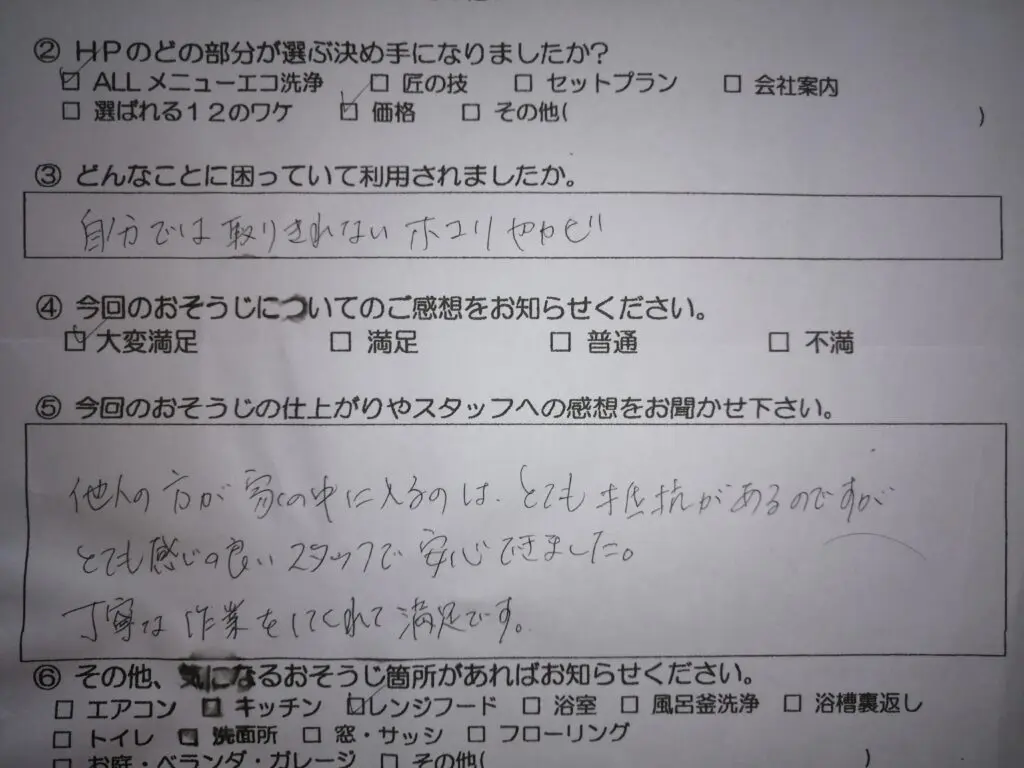 ② HPのどの部分が選ぶ決め手になりましたか?
☑ ALLメニューエコ洗浄 □ 匠の技 □ セットプラン □ 会社案内
□ 選ばれる12のワケ ☑ 価格 □ その他( )
③ どんなことに困っていて利用されましたか。
自分では取りきれない ホコリやカビ
④ 今回のおそうじについてのご感想をお知らせください。
☑ 大変満足 □ 満足 □ 普通 □ 不満
⑤ 今回のおそうじの仕上がりやスタッフへの感想をお聞かせ下さい。
他人の方が家の中に入るのは、とても抵抗があるのですが
とても感じの良いスタッフで安心できました。
丁寧な作業をしてくれて満足です。
⑥ その他、気になるおそうじ箇所があればお知らせください。
□ エアコン □ キッチン ☑ レンジフード □ 浴室 □ 風呂釜洗浄 □ 浴槽裏返し
□ トイレ □ 洗面所 □ 窓・サッシ □ フローリング
□ お庭・ベランダ・ガレージ □ その他( )